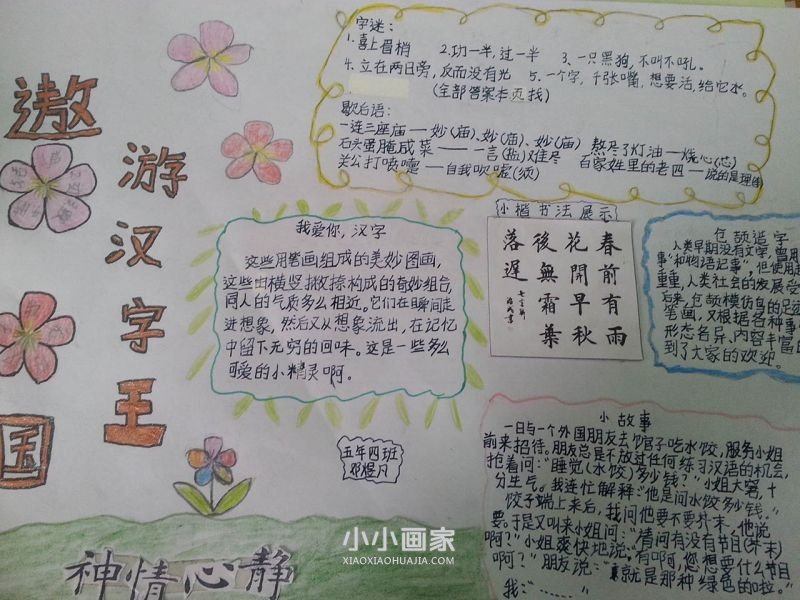 遨
游
汉
字
王
国
字迷：
1.喜上眉梢 2.功一半，过一半 3、一只黑狗，不叫不吼。
4.立在两日旁，反而没有光 5、一个字，千张嘴，想要活，给它水。
(全部答案本页找)
歇后语：
一连三座庙——妙(庙)、妙(庙)、妙(庙) 熬尽了灯油—烧心(芯)
石头蛋腌咸菜——一言(盐)难尽 百家姓里的老四—说的是理
关公打喷嚏——自我吹嘘(须)
我爱你，汉字
这些用笔画组成的美妙图画，
这些由横竖撇捺构成的奇妙组合，
同人的气质多么相近。它们在瞬间走
进想象，然后又从想象流出，在记忆
中留下无穷的回味。这是一些多么
可爱的小精灵啊。
小楷书法展示
春前有雨
花開早秋
後無霜葉
落遲
仓颉造字
人类早期没有文字，曾用
事"和物语记事"，但使用
重重，人类社会的发展受
后来，仓颉模仿鸟的足迹
笔画，又根据各种事
形态名异、内容丰富的
到了大家的欢迎。
五年四班
邓煜凡
小故事
一日与一个外国朋友去饺子馆子吃水饺，服务小姐
前来招待。朋友总是不放过任何练习汉语的机会，
抢着问："睡觉(水饺)多少钱？"小姐大窘，十
分生气。我连忙解释："他是问水饺多少钱。"
饺子端上来后，我问他要不要芥末，他说
要。于是又叫来小姐问："请问有没有节目(芥末)
啊？"小姐爽快地说："有啊，您想要什么节目
啊？"朋友说："就是那种绿色的啦。"
我："……"
神情心静
小小画家
XIAOXIAOHUAJIA.COM